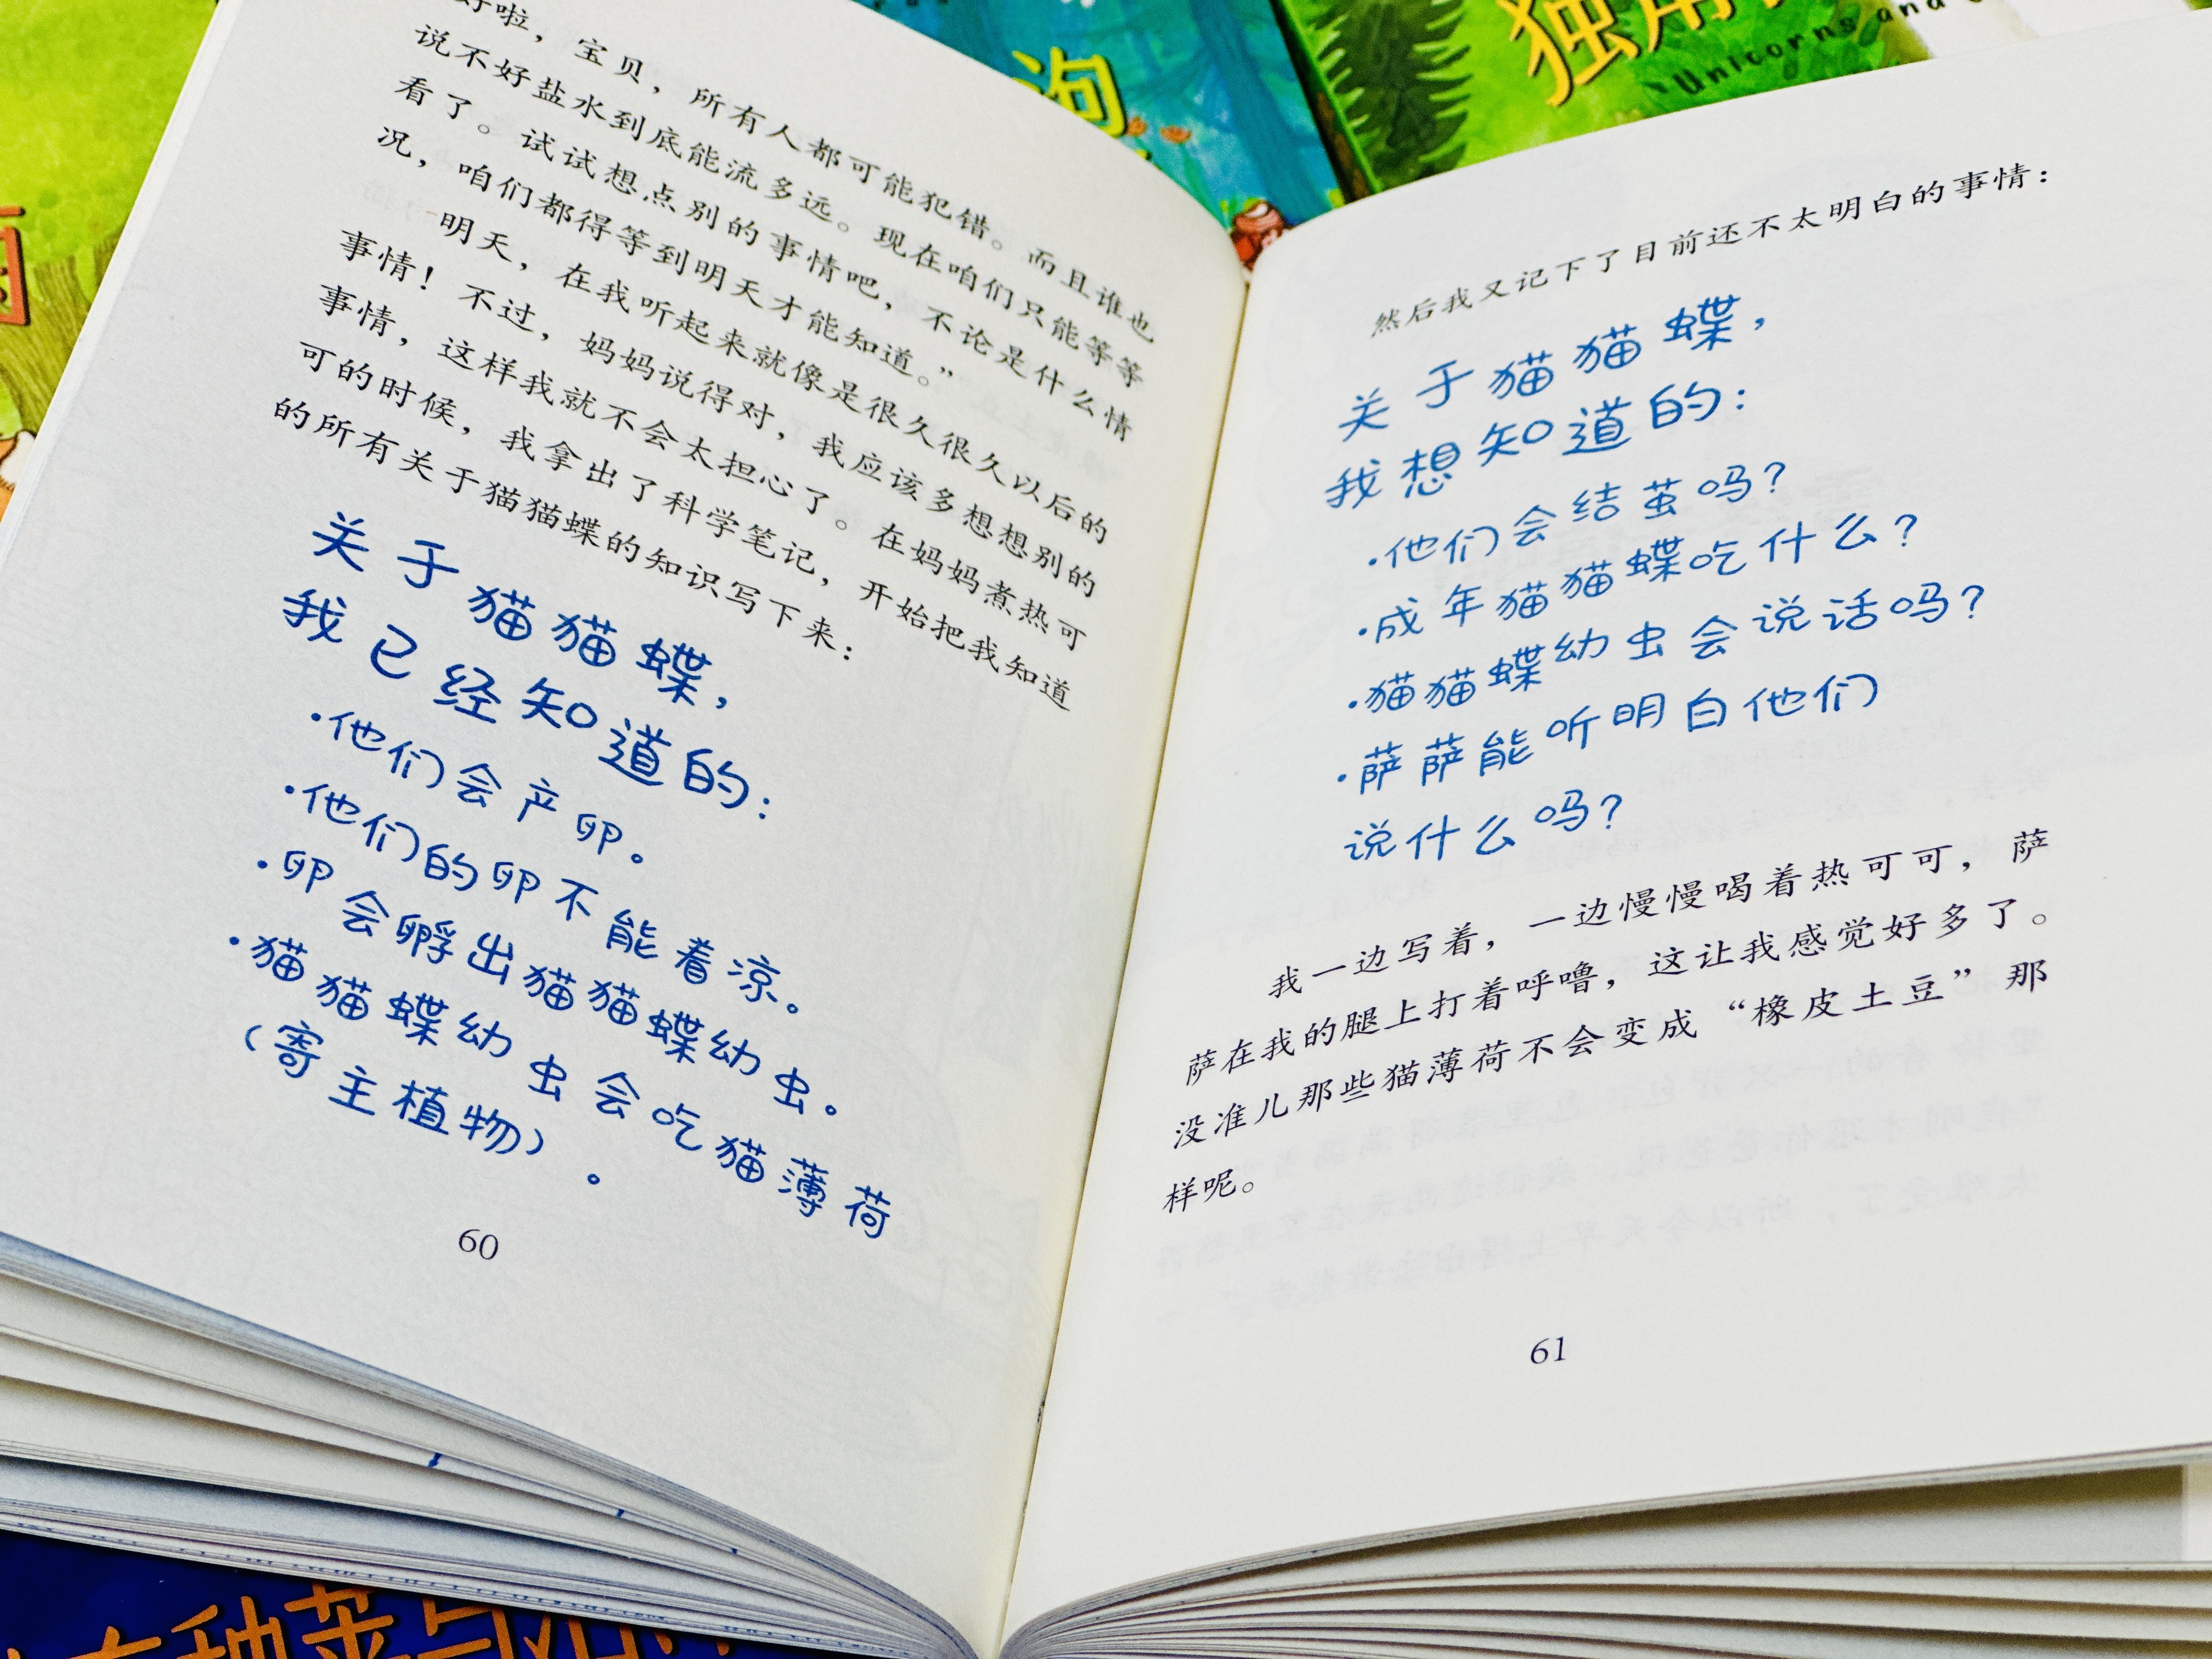 好啦，宝贝，所有人都可能犯错。而且谁也
说不好盐水到底能流多远。现在咱们只能等等
看了。试试想点别的事情吧，不论是什么情
况，咱们都得等到明天才能知道。”
明天，在我听起来就像是很久很久以后的
事情！不过，妈妈说得对，我应该多想想别的
事情，这样我就不会太担心了。在妈妈煮热可
可的时候，我拿出了科学笔记，开始把我知道
的所有关于猫猫蝶的知识写下来：
关于猫猫蝶，
我已经知道的：
·他们会产卵。
·他们的卵不能着凉。
·卵会孵出猫猫蝶幼虫。
·猫猫蝶幼虫会吃猫薄荷
（寄主植物）。
60
然后我又记下了目前还不太明白的事情：
关于猫猫蝶，
我想知道的：
·他们会结茧吗？
·成年猫猫蝶吃什么？
·猫猫蝶幼虫会说话吗？
·萨萨能听明白他们
说什么吗？
我一边写着，一边慢慢喝着热可可，萨
萨在我的腿上打着呼噜，这让我感觉好多了。
没准儿那些猫薄荷不会变成“橡皮土豆”那
样呢。
61
独角
Unicorns and